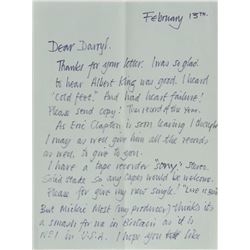 February 13th.
Dear Darryl.
Thanks for your letter. I was so glad
to hear Albert King was good. I heard
"cold feet". And had heart failure!
Please send copy! The record of the year.
As Eric Clapton is soon leaving I thought
I may as well give him all the records
as well, to give to you.
I have a tape recorder "Sony" stereo.
Solid state so any tapes would be welcome.
Please for give my new single! "Love is Blue"
But Mickie Most (my producer) thinks its
a smash for me in Britain as it is
No1 in U.S.A. I hope you like